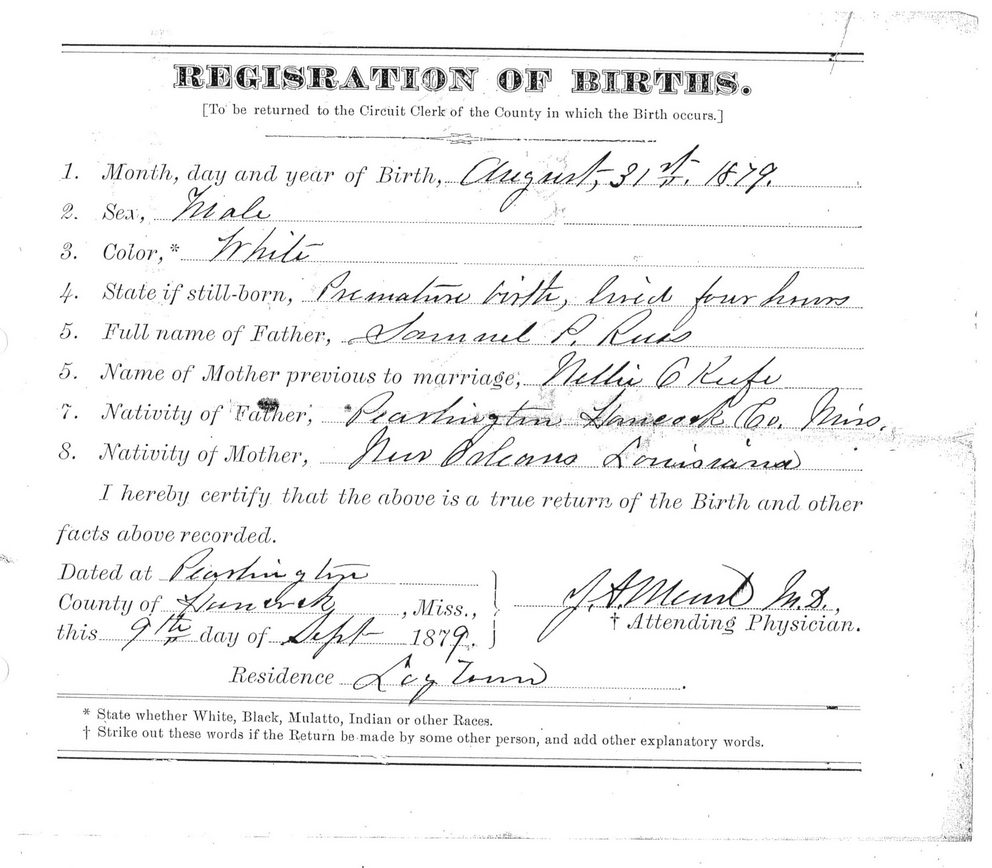 REGISRATION OF BIRTHS.
[To be returned to the Circuit Clerk of the County in which the Birth occurs.]
1. Month, day and year of Birth, August, 31st. 1879.
2. Sex, Male
3. Color,* White
4. State if still-born, Premature birth, lived four hours
5. Full name of Father, Samuel P. Russ
5. Name of Mother previous to marriage, Nellie O Keefe
7. Nativity of Father, Pearlington Hancock Co. Miss.
8. Nativity of Mother, New Orleans Louisiana
I hereby certify that the above is a true return of the Birth and other
facts above recorded.
Dated at Pearlington
County of Hancock, Miss.,
this 9th day of Sept 1879.
J. A. Mead M.D.,
† Attending Physician.
Residence Log Town.
* State whether White, Black, Mulatto, Indian or other Races.
† Strike out these words if the Return be made by some other person, and add other explanatory words.